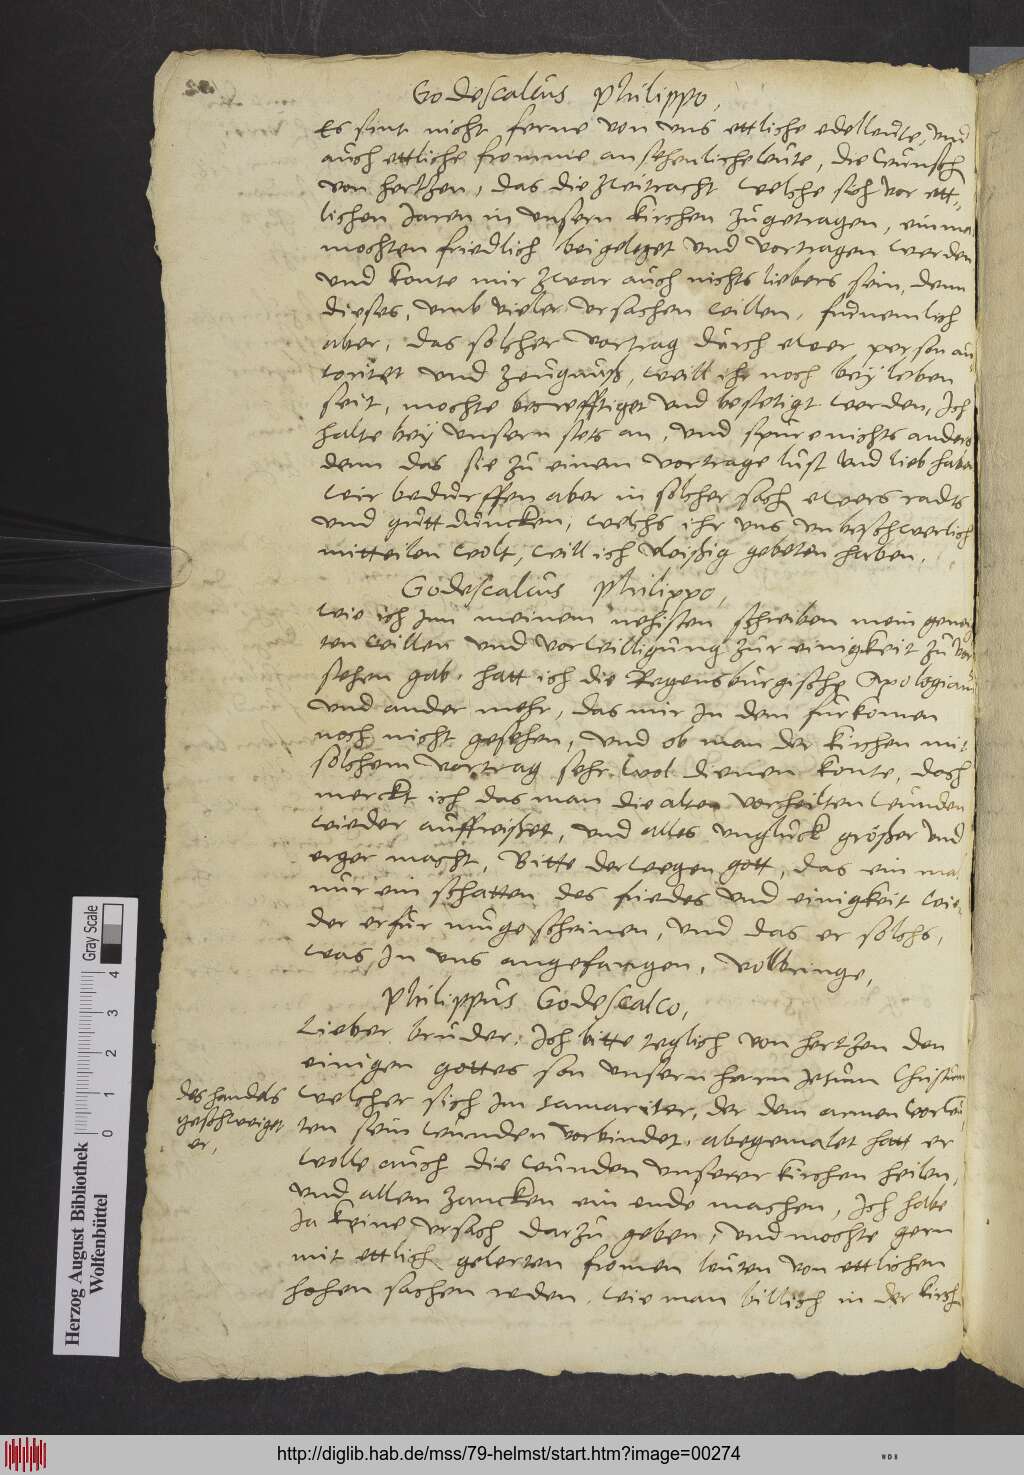 Godescalcus Philippo,
Es sint nicht ferne von uns ettliche edelleute, und
auch ettliche fromme ansehenliche leute, die wunsch
von hertzen, das die zwitracht welche sich vor ett-
lichen Jaren in unsern kirchen zugetragen, ein mal
mochten friedlich beigeleget und vortragen werden
und konte mir zwar auch nichts liebers sein, denn
dieses, umb vieler ursachen willen, furnemlich
aber, das solcher vortrag durch ewer person au-
toritet und zeugnuß, weill ihr noch bey leben
seit, mochte becrefftiget und bestetigt werden, Ich
halte bey unsern stets an, und spure nichts anders
denn das sie zu einem vortrage lust und lieb haben
wir bedurffen aber in solcher sach ewers radts
und gutt duncken, welchs ihr uns unbeschwerlich
mitteilen wolt, will ich vleißig gebeten haben.
Godescalcus Philippo,
Wie ich inn meinem nehisten schreiben mein geneig
ten willen und vorwilligung zur einigkeit zu vor
stehen gab, hatt ich die Regensburgische Apologiam
und ander mehr, das mir in dem furkomen
noch nicht gesehen, und ob man der kirchen mit
solchem vortrag sehr wol dienen konte, doch
merckt ich das man die alten vorheilten wunden
wieder auffreißet, und alles ungluck größer und
erger macht, Bitte derwegen gott, das ein mal
nur ein schatten des friedes und einigkeit wie-
der erfur muge scheinen, und das er solchs,
was in uns angefangen, volbringe,
Philippus Godescalco,
Lieber bruder, Ich bitte teglich von hertzen den
einigen gottes son unsern herrn Jesum Christum
welcher sich im Samariter, der dem armen vorwu
ten sein wunden vorbindet, abgemalet hatt er
wolle auch die wunden unserer kirchen heilen,
und allem zancken ein ende machen, Ich habe
Ja keine ursach darzu geben, und mochte gern
mit ettlich gelerten fromen leuten von ettlichen
hohen sachen reden, wie man billich in der kirch
des handels
geschweiget
er,
Herzog August Bibliothek
Wolfenbüttel
Gray Scale
0 1 2 3 4
http://diglib.hab.de/mss/79-helmst/start.htm?image=00274